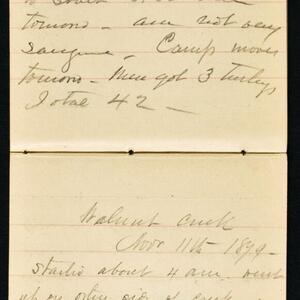 tomorrow - am not very
sanguine - Camp moves
tomorrow - Men got 3 turkeys
Total 42 -
Walnut Creek
Novr 11th 1879 -
Started about 4 am. went
up on other side of creek